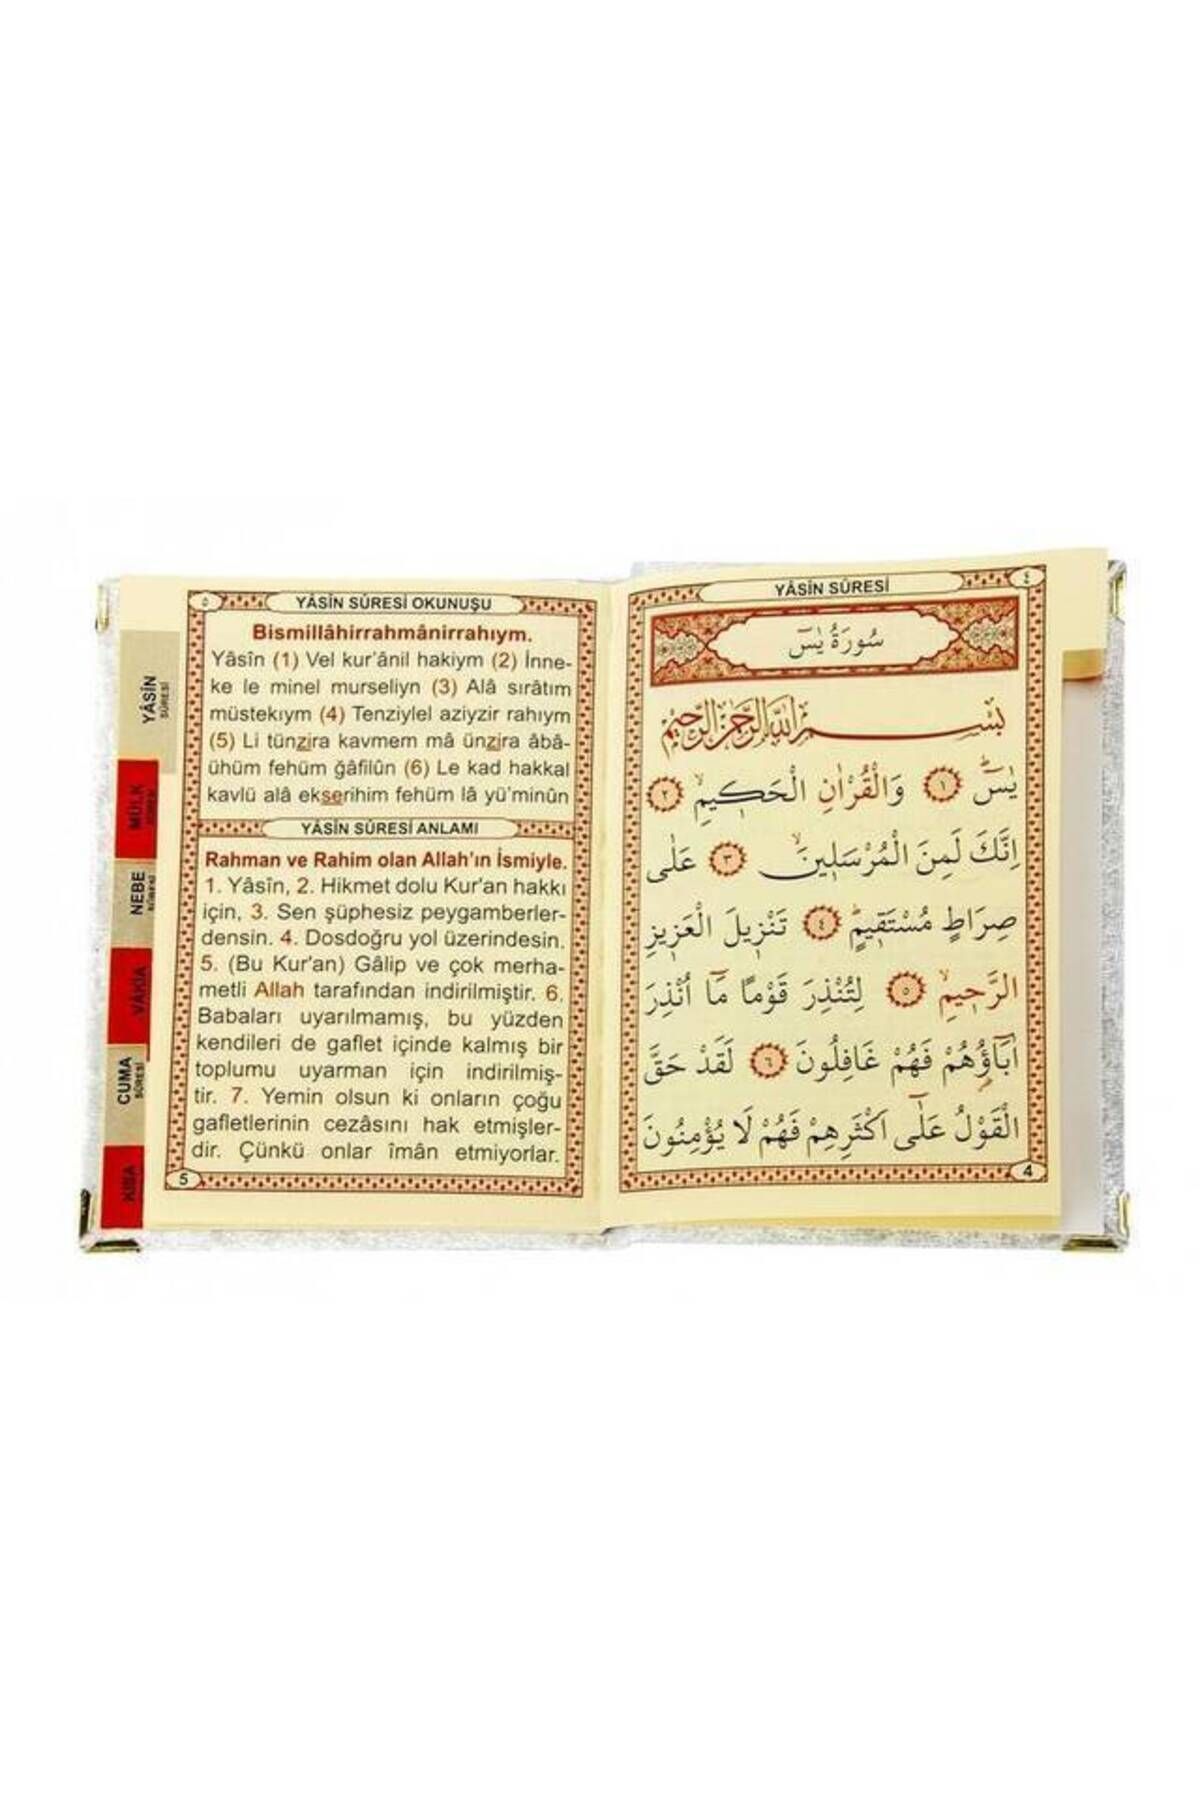 ٤
YÂSÎN SÛRESİ
سُورَةُ يٰسٓ
بِسْمِ اللّٰهِ الرَّحْمٰنِ الرَّحِيمِ
يٰسٓ ﴿١﴾ وَالْقُرْاٰنِ الْحَكٖيمِ ﴿٢﴾
اِنَّكَ لَمِنَ الْمُرْسَلٖينَ ﴿٣﴾ عَلٰى
صِرَاطٍ مُسْتَقٖيمٍ ﴿٤﴾ تَنْزٖيلَ الْعَزٖيزِ
الرَّحٖيمِ ﴿٥﴾ لِتُنْذِرَ قَوْمًا مَٓا اُنْذِرَ
اٰبَٓاؤُهُمْ فَهُمْ غَافِلُونَ ﴿٦﴾ لَقَدْ حَقَّ
الْقَوْلُ عَلٰٓى اَكْثَرِهِمْ فَهُمْ لَا يُؤْمِنُونَ
4
٥
YÂSÎN SÛRESİ OKUNUŞU
Bismillâhirrahmânirrahıym.
Yâsîn (1) Vel kur'ânil hakiym (2) İnne-
ke le minel murseliyn (3) Alâ sırâtım
müstekıym (4) Tenziylel aziyzir rahıym
(5) Li tünzira kavmem mâ ünzira âbâ-
ühüm fehüm ğâfilûn (6) Le kad hakkal
kavlü alâ ekserihim fehüm lâ yü'minûn
YÂSÎN SÛRESİ ANLAMI
Rahman ve Rahim olan Allah'ın İsmiyle.
1. Yâsîn, 2. Hikmet dolu Kur'an hakkı
için, 3. Sen şüphesiz peygamberler-
densin. 4. Dosdoğru yol üzerindesin.
5. (Bu Kur'an) Gâlip ve çok merha-
metli Allah tarafından indirilmiştir. 6.
Babaları uyarılmamış, bu yüzden
kendileri de gaflet içinde kalmış bir
toplumu uyarman için indirilmiş-
tir. 7. Yemin olsun ki onların çoğu
gafletlerinin cezâsını hak etmişler-
dir. Çünkü onlar îmân etmiyorlar.
5
YÂSÎN
SÛRESİ
MÜLK
NEBE
VÂKIA
CUMA
SÛRESİ
KISA